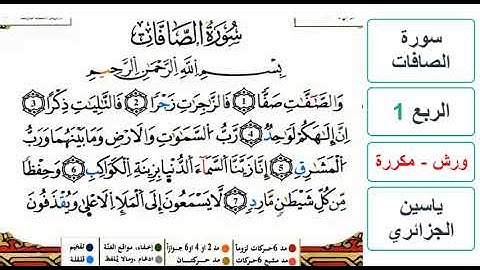 سُورَةُ الصَّافَّات
بِسْمِ اللَّهِ الرَّحْمَنِ الرَّحِيمِ
وَالصَّٰٓفَّٰتِ صَفّاٗ 1 فَالزَّٰجِرَٰتِ زَجْراٗ 2 فَالتَّٰلِيَٰتِ ذِكْراً 3
اِنَّ إِلَٰهَكُمْ لَوَٰحِدٞ 4 رَّبُّ السَّمَٰوَٰتِ وَالَارْضِ وَمَا بَيْنَهُمَا وَرَبُّ
الْمَشَٰرِقِ 5 إِنَّا زَيَّنَّا السَّمَآءَ الدُّنْيَا بِزِينَةِ الْكَوَاكِبِ 6 وَحِفْظاٗ
مِّن كُلِّ شَيْطَٰنٖ مَّارِدٖ 7 لَّا يَسْمَعُونَ إِلَى الْمَلَإِ الَاعْلَىٰ وَيُقْذَفُونَ
مد 6 حركات لزوماً
مد 2 أو 4 أو 6 جوازاً
إخفاء، ومواقع الغنّة
تفخيم
مد مشبع 6 حركات
مد حركتان
ادغام، ومالا يُلفظ
قلقلة
سورة
الصافات
الربع 1
ورش - مكررة
ياسين
الجزائري